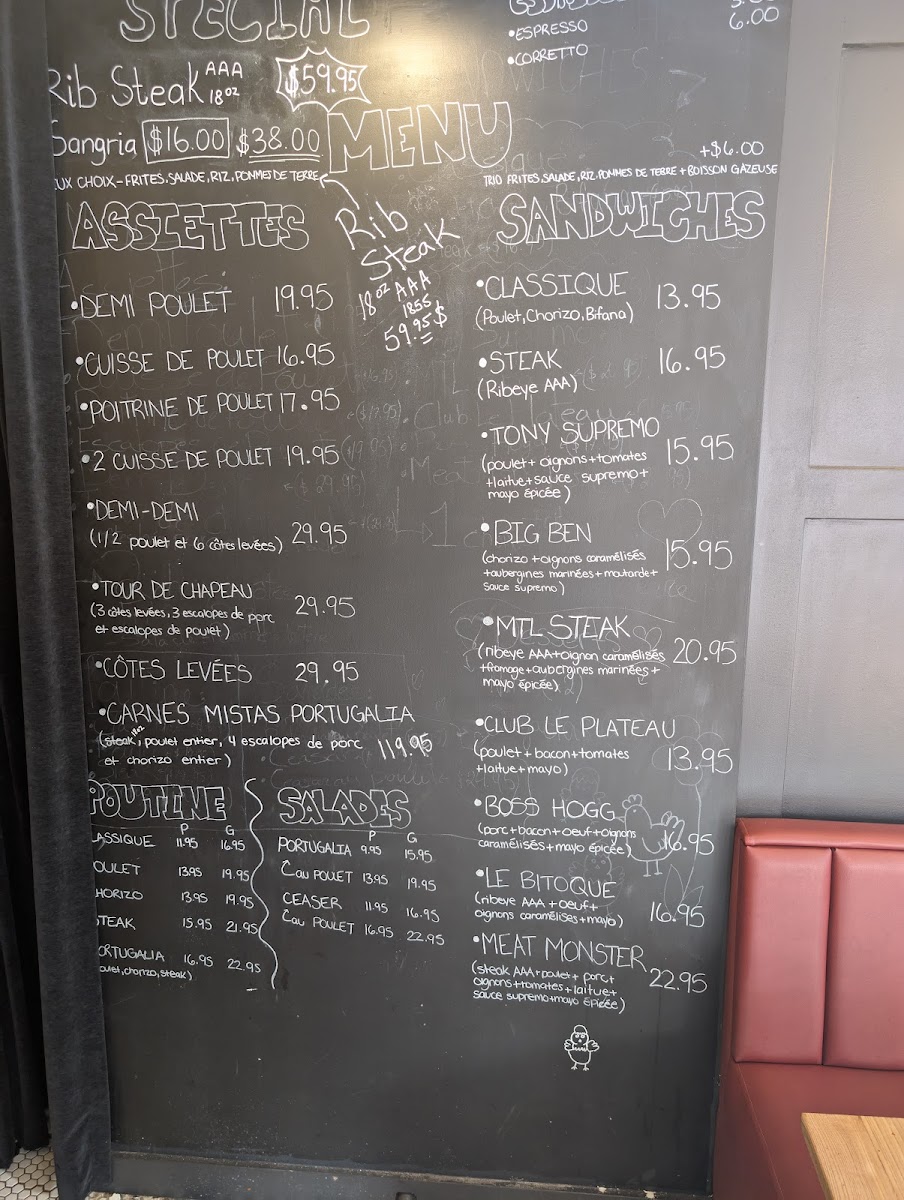 SPECIAL
Rib Steak AAA 18oz $59.95
Sangria $16.00 $38.00
MENU
UX CHOIX-FRITES, SALADE, RIZ, POMMES DE TERRE
Rib
Steak
18oz AAA
1855
59.95$
ASSIETTES
•DEMI POULET 19.95
•CUISSE DE POULET 16.95
•POITRINE DE POULET 17.95
•2 CUISSE DE POULET 19.95
•DEMI-DEMI
(1/2 poulet et 6 côtes levées) 29.95
•TOUR DE CHAPEAU
(3 côtes levées, 3 escalopes de porc 29.95
et escalopes de poulet)
•CÔTES LEVÉES 29.95
•CARNES MISTAS PORTUGALIA
(steak, poulet entier, 4 escalopes de porc 119.95
et chorizo entier)
POUTINE
P G
LASSIQUE 11.95 16.95
OULET 13.95 19.95
HORIZO 13.95 19.95
TEAK 15.95 21.95
ORTUGALIA 16.95 22.95
oulet, chorizo, steak)
SALADES
P G
PORTUGALIA 9.95 15.95
au POULET 13.95 19.95
CEASER 11.95 16.95
au POULET 16.95 22.95
6.00
•ESPRESSO
•CORRETTO
+$6.00
TRIO FRITES, SALADE, RIZ, POMMES DE TERRE + BOISSON GAZEUSE
SANDWICHES
•CLASSIQUE 13.95
(Poulet, Chorizo, Bifana)
•STEAK 16.95
(Ribeye AAA)
•TONY SUPREMO 15.95
(poulet+oignons+tomates
+laitue+sauce supremo+
mayo épicée)
•BIG BEN 15.95
(chorizo+oignons caramélisés
+aubergines marinées+moutarde+
sauce supremo)
•MTL STEAK 20.95
(ribeye AAA+oignon caramélisés
+fromage+aubergines marinées+
mayo épicée)
•CLUB LE PLATEAU 13.95
(poulet+bacon+tomates
+laitue+mayo)
•BOSS HOGG 16.95
(porc+bacon+oeuf+oignons
caramélisés+mayo épicée)
•LE BITOQUE 16.95
(ribeye AAA+oeuf+
oignons caramélises+mayo)
•MEAT MONSTER 22.95
(steak AAA+poulet+porc+
oignons+tomates+laitue+
sauce supremo+mayo épicée)